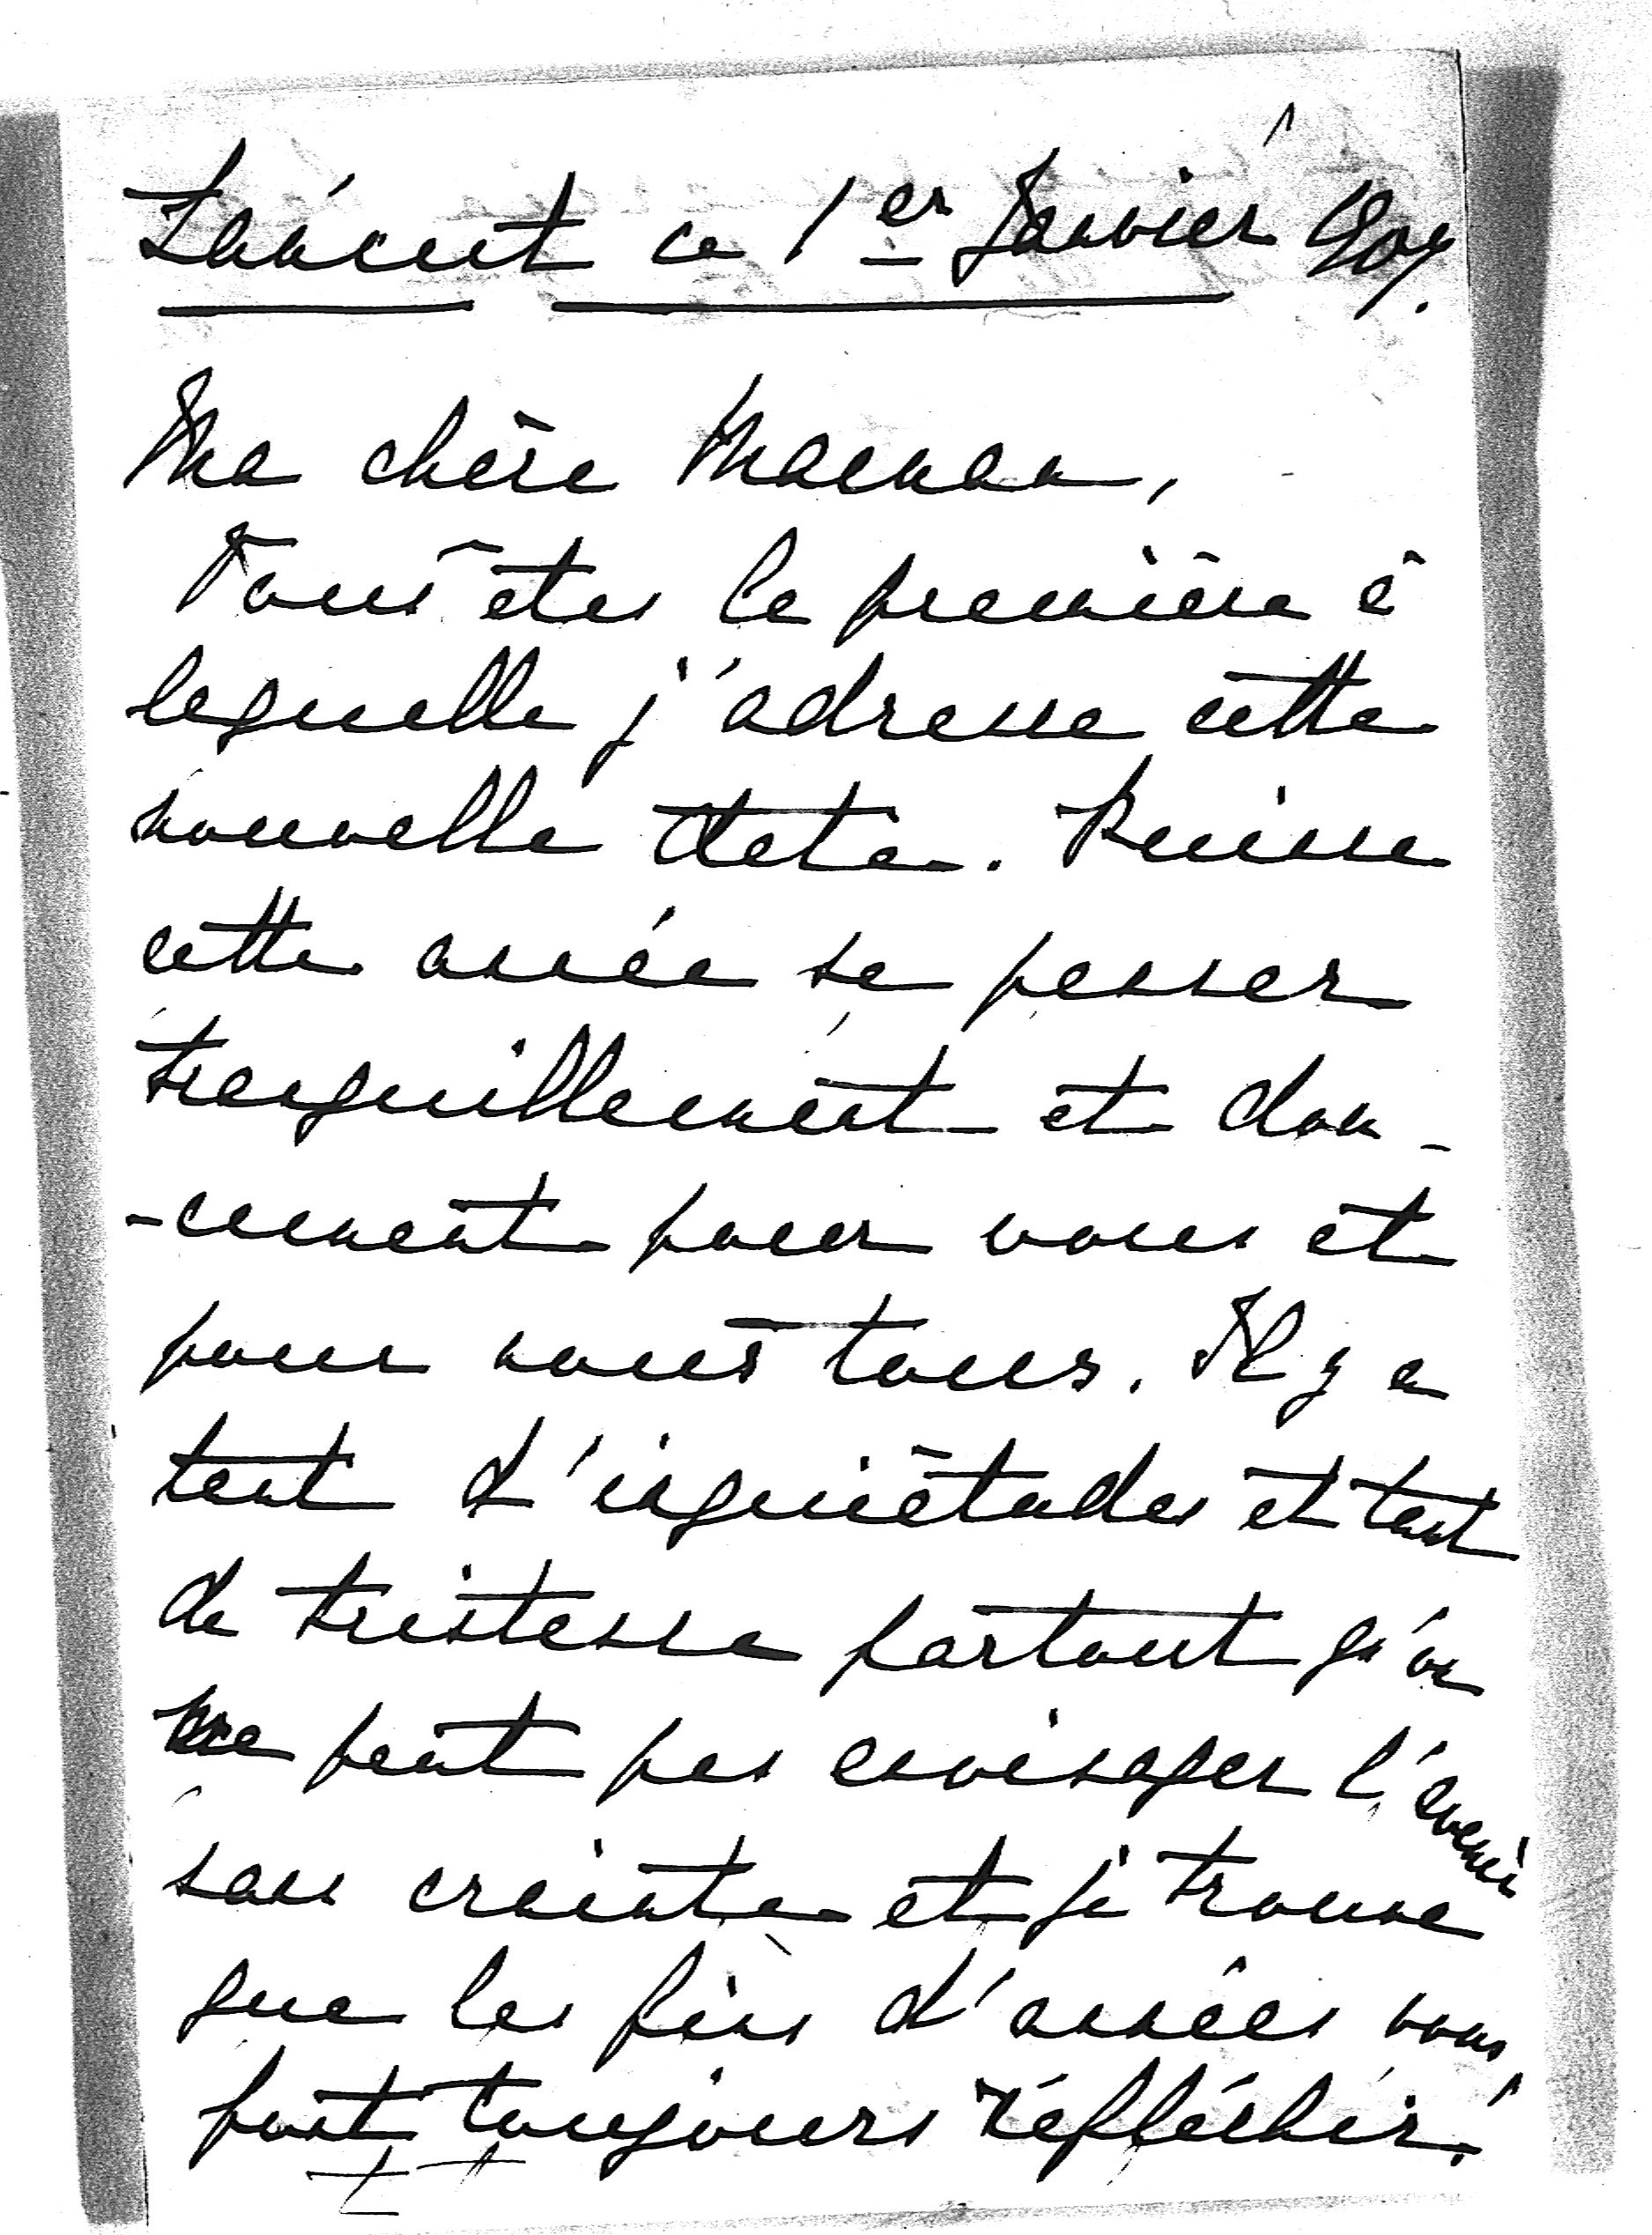 ce 1er Janvier 1909.
Ma chère Maman,
Vous êtes la première à
laquelle j'adresse cette
nouvelle date. Puisse
cette année se passer
tranquillement et dou-
-cement pour vous et
pour nous tous. Il y a
tant d'inquiétudes et tant
de tristesse partout qu'on
ne peut pas envisager l'avenir
sans crainte et je trouve
que les fins d'années vous
font toujours réfléchir.